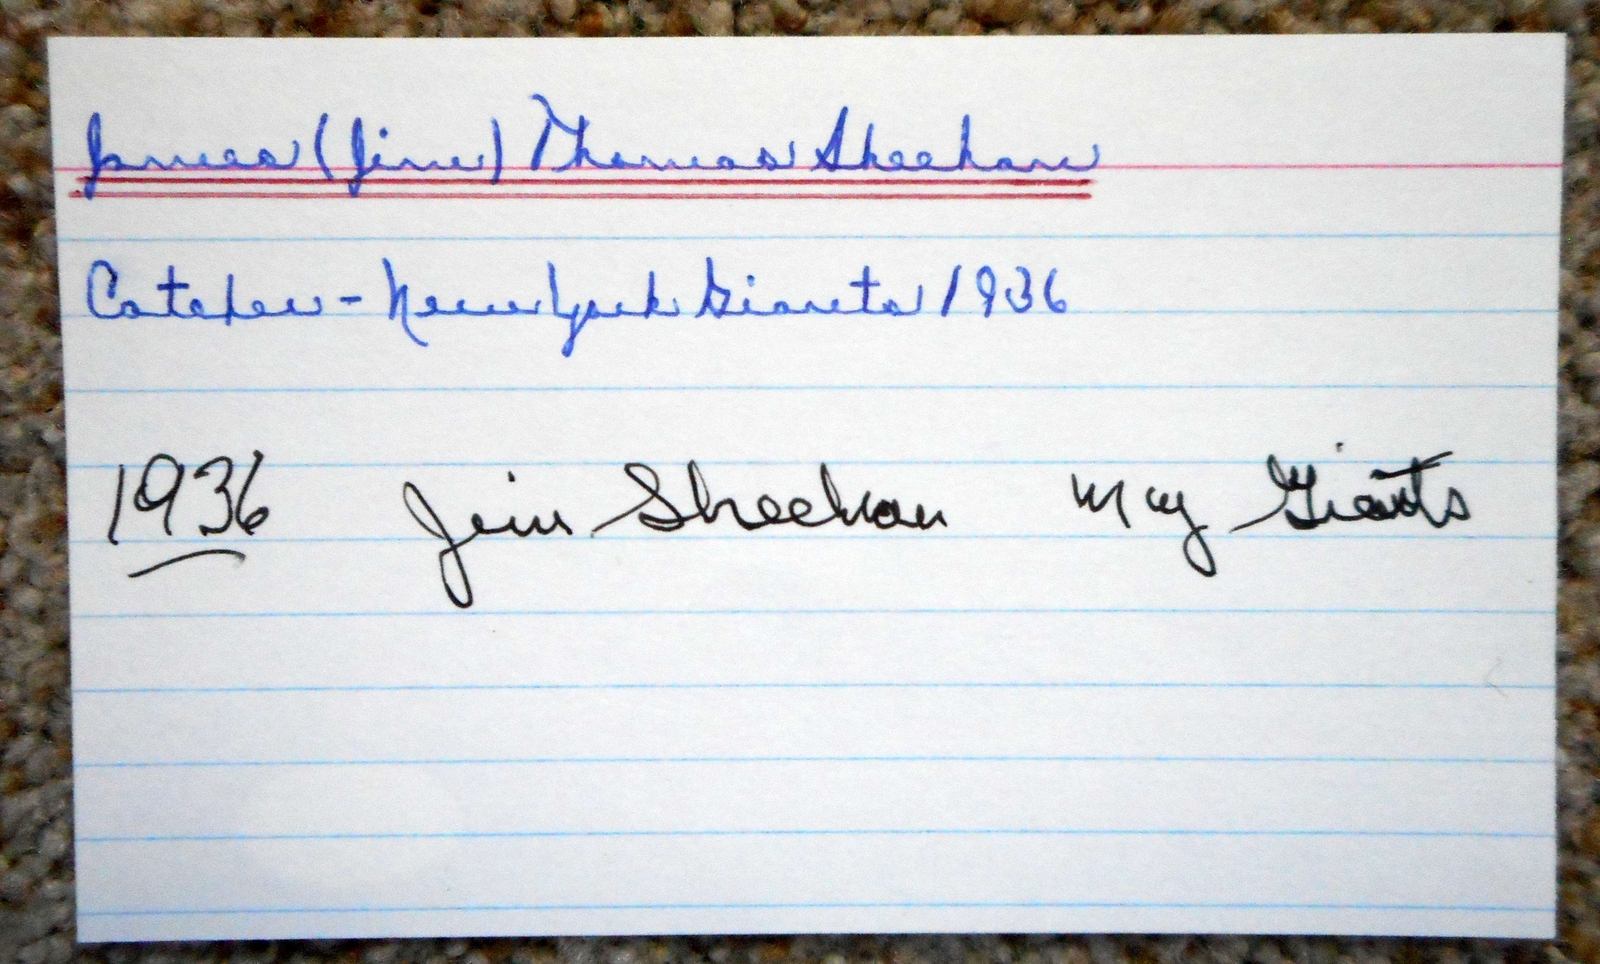 James (Jim) Thomas Sheehan
Catcher - New York Giants 1936
1936 Jim Sheehan NY Giants